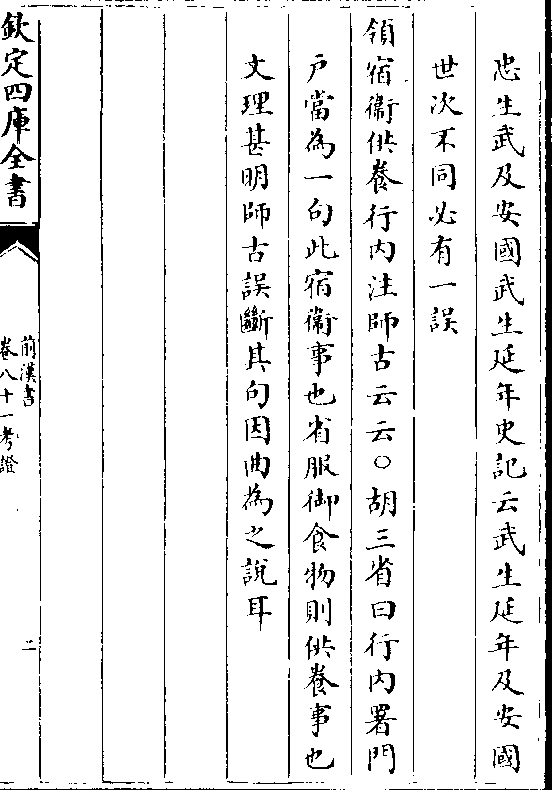 忠生武及安國武生延年史記云武生延年及安國
世次不同必有一誤
領宿衞供養行內注師古云云○胡三省曰行內署門
戶當為一句此宿衞事也省服御食物則供養事也
文理甚明師古誤斷其句因曲為之說耳
欽定四庫全書
前漢書
卷八十一考證
二